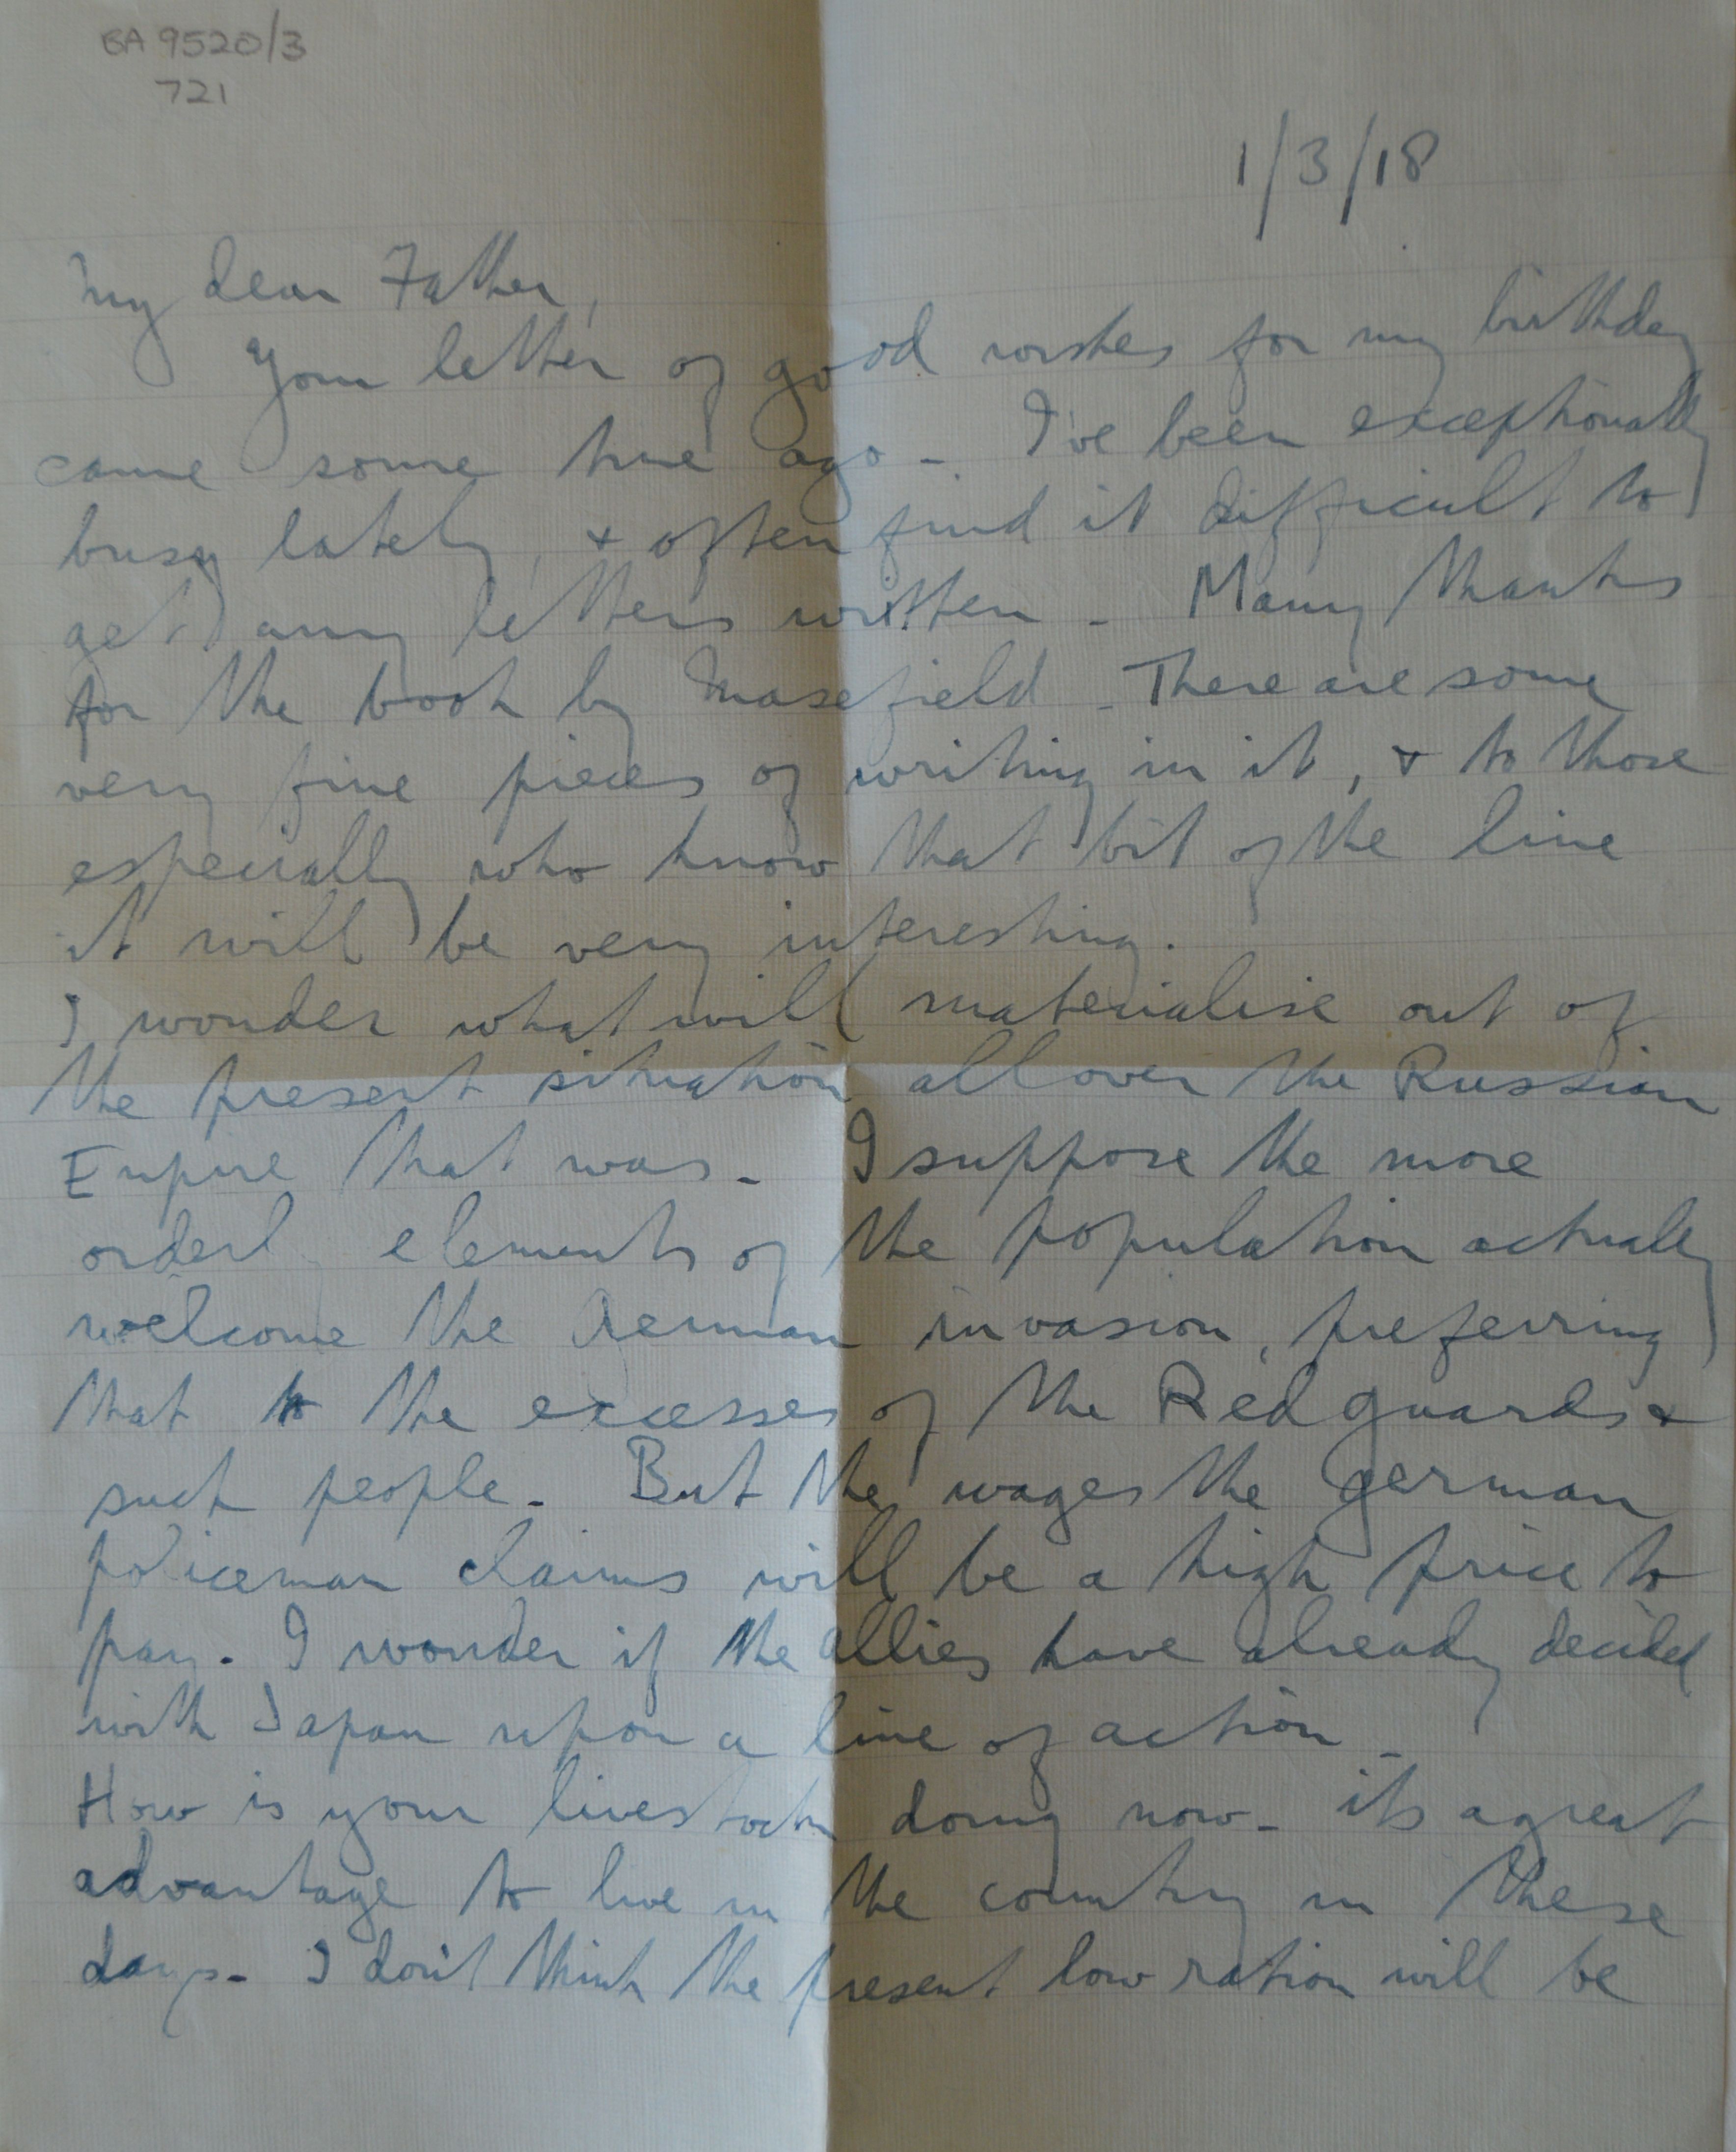 BA 9520/3
721
1/3/18
My dear Father,
Your letter of good wishes for my birthday
came some time ago - I've been exceptionally
busy lately, & often find it difficult to
get any letters written - Many thanks
for the book by Masefield - There are some
very fine pieces of writing in it, & to those
especially who know that bit of the line
it will be very interesting.
I wonder what will materialise out of
the present situation all over the Russian
Empire that was - I suppose the more
orderly elements of the population actually
welcome the German invasion, preferring
that to the excesses of the Red guards &
such people - But the wages the German
policeman claims will be a high price to
pay. I wonder if the allies have already decided
with Japan upon a line of action -
How is your livestock doing now - its a great
advantage to live in the country in these
days - I don't think the present low ration will be